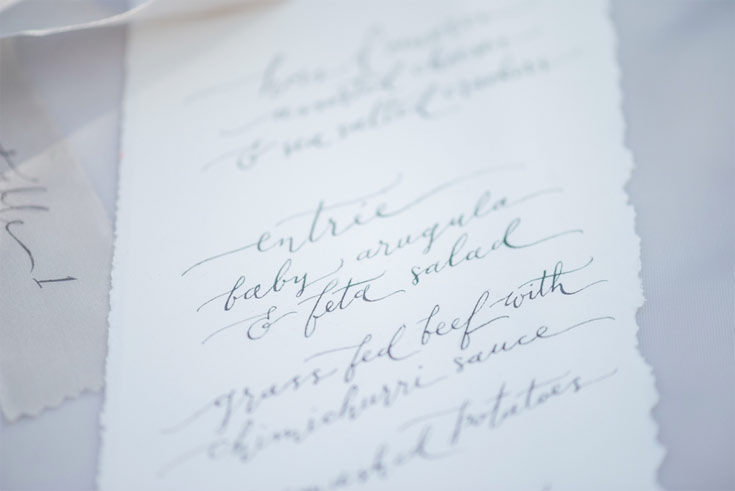 assorted cheeses
& sea salted crackers
entrée
baby arugula
& feta salad
grass fed beef with
chimichurri sauce
mashed potatoes